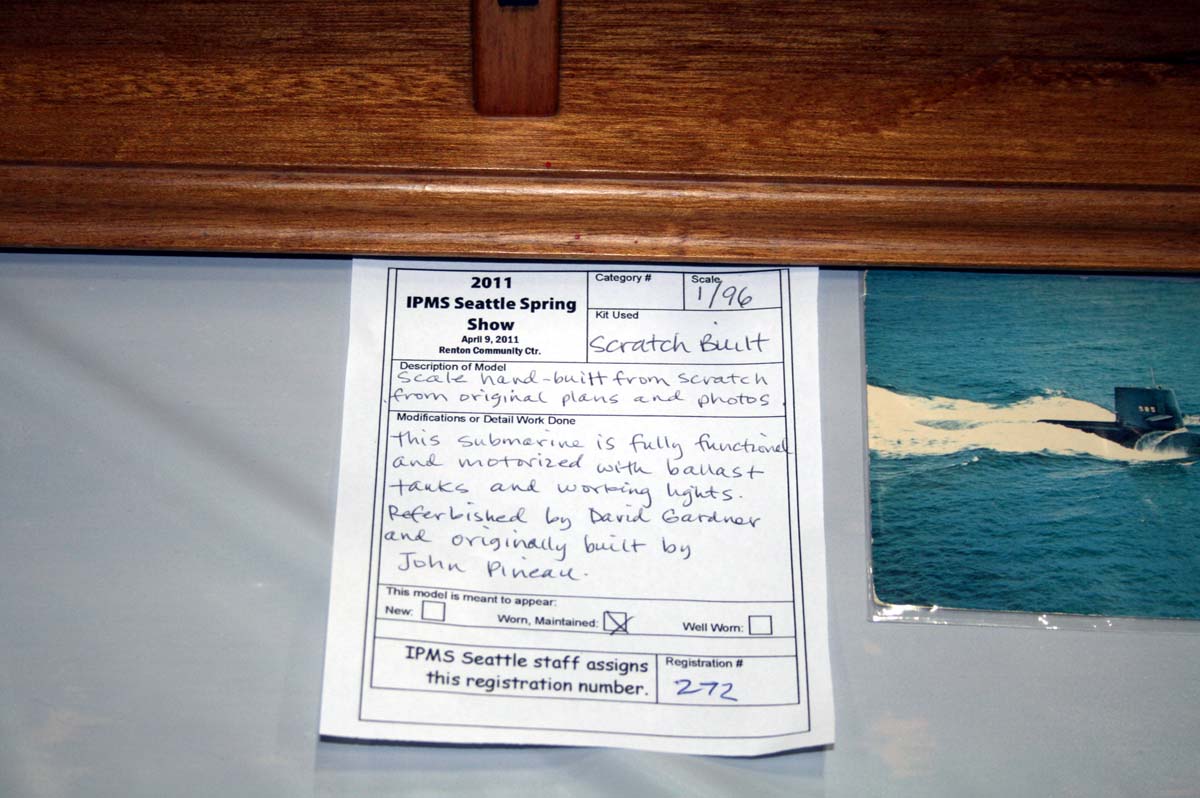 2011
IPMS Seattle Spring
Show
April 9, 2011
Renton Community Ctr.
Category #
Scale
1/96
Kit Used
Scratch Built
Description of Model
Scale hand-built from scratch
from original plans and photos.
Modifications or Detail Work Done
This submarine is fully functional
and motorized with ballast
tanks and working lights.
Referbished by David Gardner
and originally built by
John Pineau.
This model is meant to appear:
New:
Worn, Maintained:
Well Worn:
IPMS Seattle staff assigns
this registration number.
Registration #
272
585